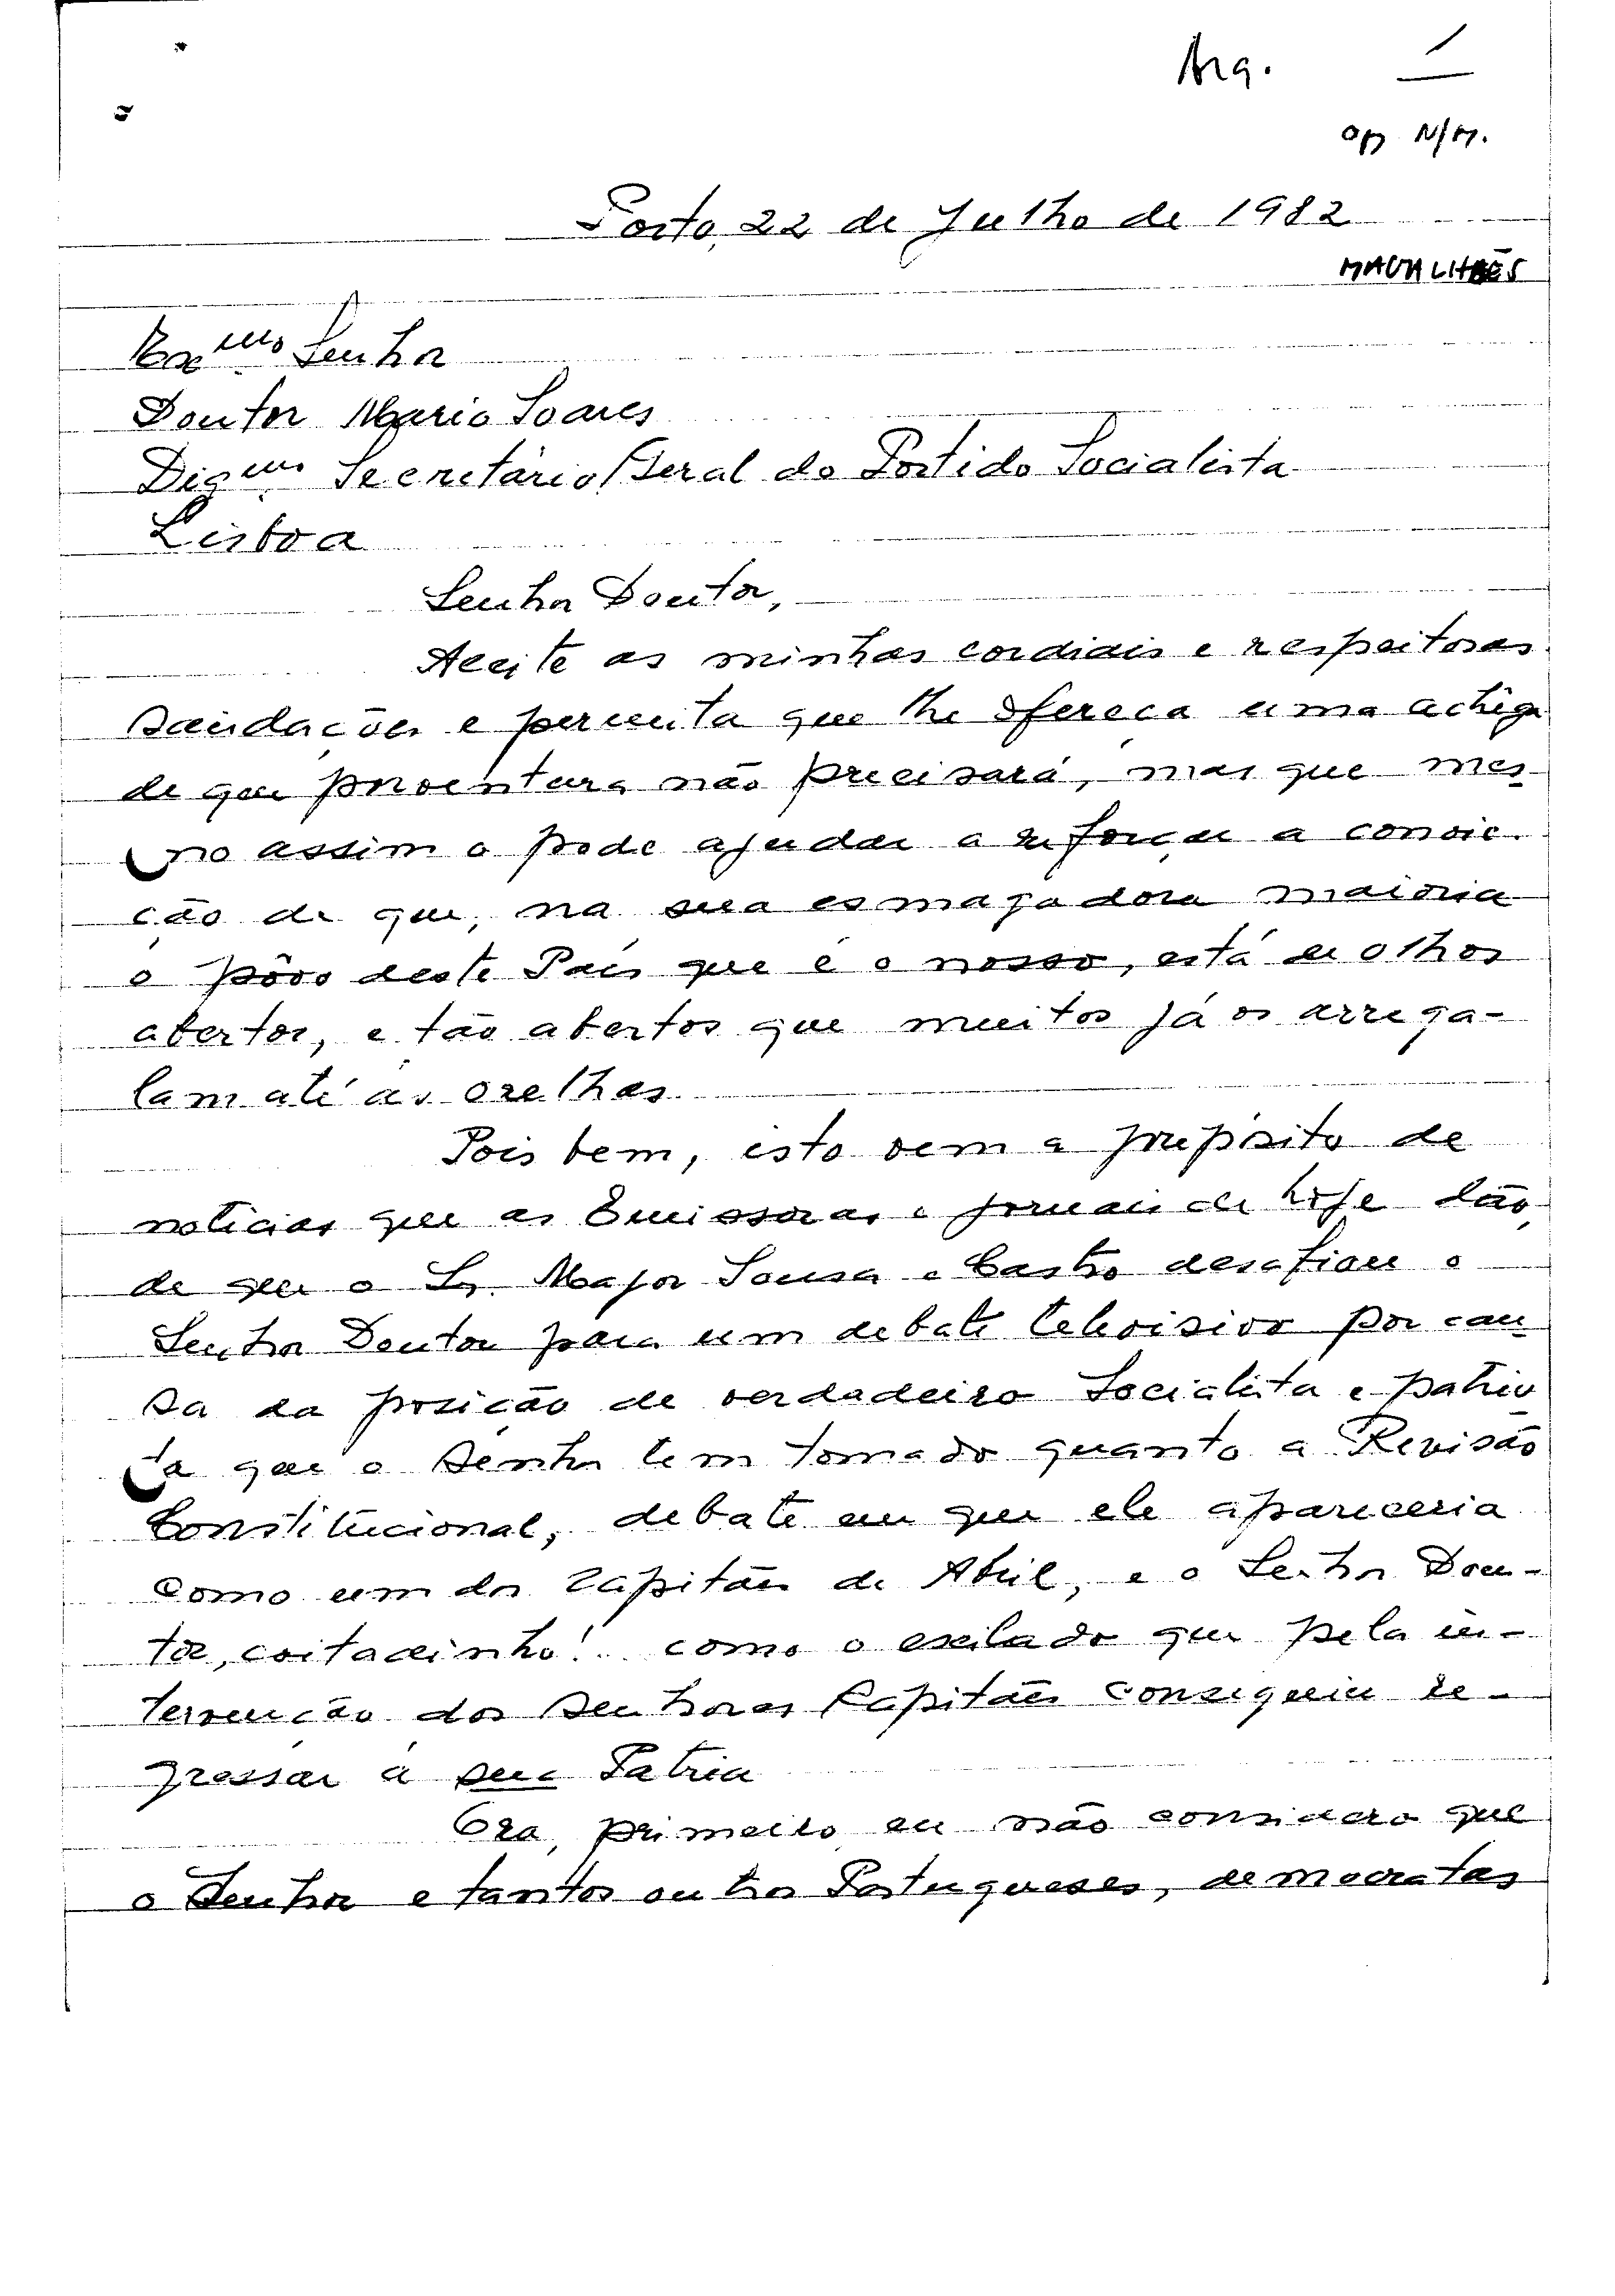 Arq. 1
Porto, 22 de Julho de 1982
MAGALHÃES
Exmo Senhor
Doutor Mario Soares
Digmo Secretário Geral do Partido Socialista
Lisboa
Senhor Doutor,
Aceite as minhas cordiais e respeitosas
saudações e permita que lhe ofereça uma achêga
de que porventura não precisará, mas que mes
mo assim o pode ajudar a reforçar a convic-
ção de que, na sua esmagadora maioria
o pôvo deste País que é o nosso, está de olhos
abertos, e tão abertos que muitos já os arrega-
lam até às orelhas.
Pois bem, isto vem a propósito de
notícias que as Emissoras e jornais de hoje dão,
de que o Sr. Major Sousa e Castro desafiou o
Senhor Doutor para um debate televisivo por cau
sa da posição de verdadeiro Socialista e patrio
ta que o Senhor tem tomado quanto a Revisão
Constitucional, debate em que ele apareceria
como um dos Capitães de Abril, e o Senhor Dou-
tor, coitadinho! como o exilado que pela in-
tervenção dos Senhores Capitães conseguiu re-
gressar à sua Patria
Ora, primeiro eu não considero que
o Senhor e tantos outros Portugueses, democratas